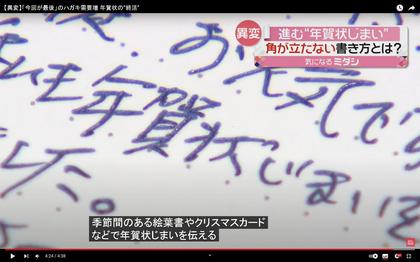 【異変】「今回が最後」のハガキ需要増 年賀状の“終活”
異変
進む“年賀状じまい”
角が立たない書き方とは?
気になるミダシ
お元気で
年賀状じまい
季節間のある絵葉書やクリスマスカード
などで年賀状じまいを伝える
4:24 / 4:38